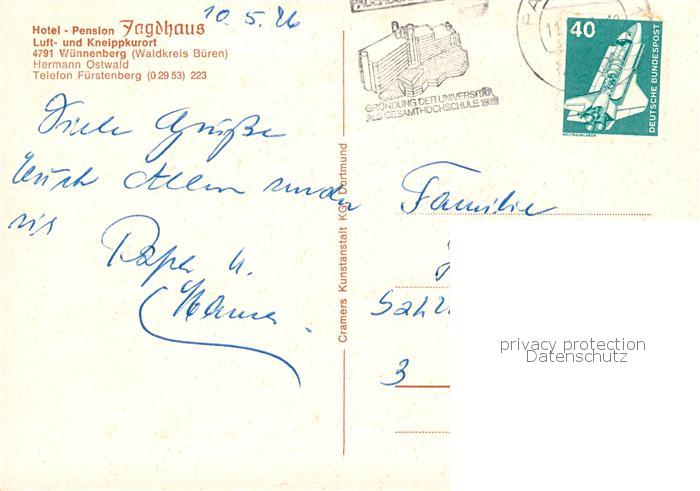 Hotel - Pension Jagdhaus
Luft- und Kneippkurort
4791 Wünnenberg (Waldkreis Büren)
Hermann Ostwald
Telefon Fürstenberg (0 29 53) 223
10.5.76
GRÜNDUNG DER UNIVERSITÄT
ALS GESAMTHOCHSCHULE
40
DEUTSCHE BUNDESPOST
WELTRAUMLABOR
Viele Grüße
Euch Allen senden
Papa u.
Mama.
Cramers Kunstanstalt KG, Dortmund
Familie
3
privacy protection
Datenschutz